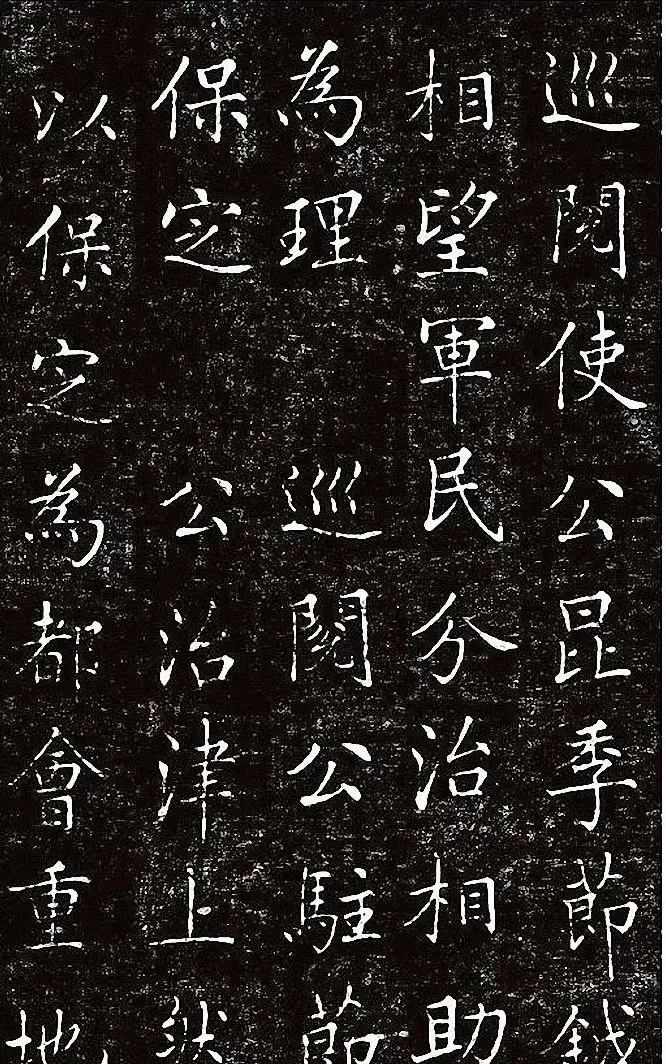 巡閱使公昆季節鉞
相望軍民分治相助
為理 巡閱公駐節
保定 公治津上然
以保定為都會重地